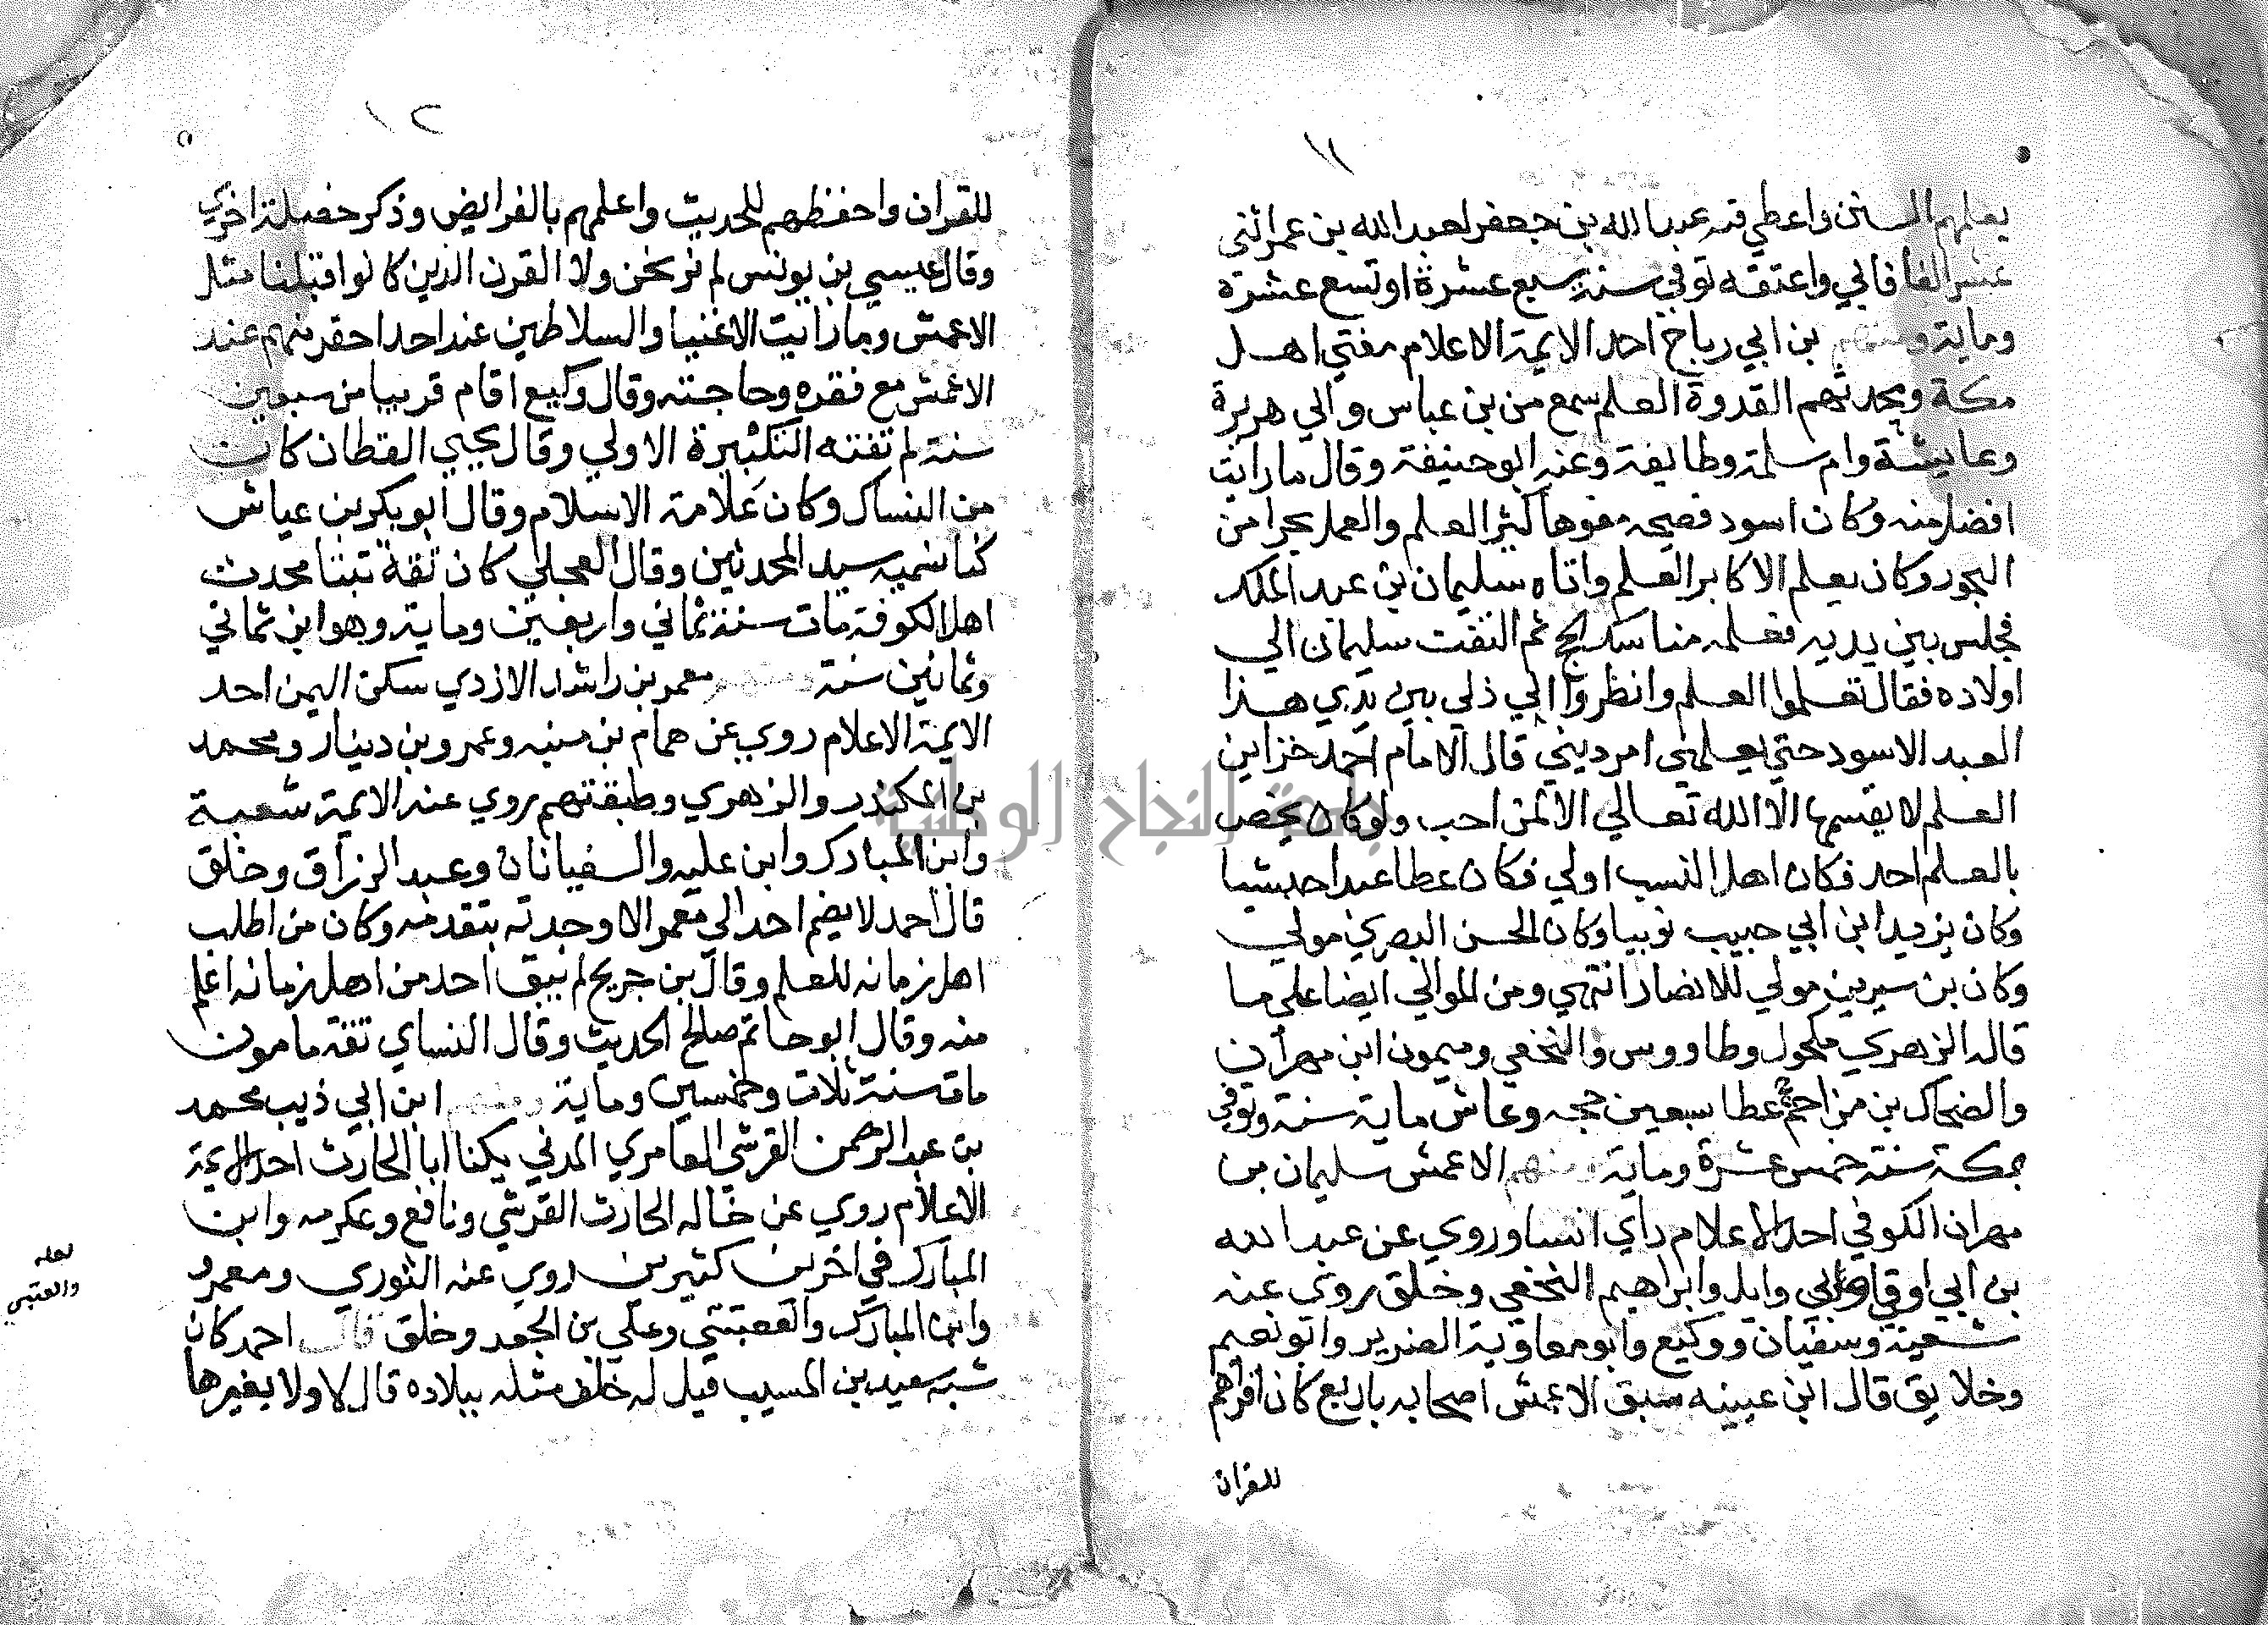 ١١
يعلمهم السنن واعطي فيه عبد الله بن جعفر لعبد الله بن عمر اثني
عشر الفا فابي واعتقه توفي سنة سبع عشرة او تسع عشرة
وماية ومنهم بن ابي رباح احد الايمة الاعلام مفتي اهل
مكة ومحدثهم القدوة العلم سمع من بن عباس وابي هريرة
وعايشة وام سلمة وطايفة وعنه ابو حنيفة وقال ما رايت
افضل منه وكان اسود فصيحه مفوها كثير العلم والعمل بحرا من
البحور وكان يعلم الاكابر العلم واتاه سليمان بن عبد الملك
فجلس بين يديه فعلمه مناسك الحج ثم التفت سليمان الي
اولاده فقال تعلموا العلم وانظروا الي ذلي بين يدي هذا
العبد الاسود حتي يعلمني امر ديني قال الامام احمد خزاين
العلم لا يقسمها الا الله تعالي الا لمن احب ولو كان يخص
بالعلم احد فكان اهل النسب اولي فكان عطا عبدا حبشيا
وكان يزيد ابن ابي حبيب نوبيا وكان الحسن البصري مولي
وكان بن سيرين مولي للانصار انتهي ومن الموالي ايضا علي ما
قاله الزهري مكحول وطاووس والنخعي وميمون ابن مهران
والضحاك بن مزاحم حج عطا سبعين حجه وعاش ماية سنة وتوفي
بمكة سنة خمس عشرة وماية ومنهم الاعمش سليمان بن
مهران الكوفي احد الاعلام راي انسا وروي عن عبد الله
بن ابي اوفي وابي وايل وابراهيم النخعي وخلق روي عنه
شعبة وسفيان ووكيع وابو معاوية الضرير وابو نعيم
وخلايق قال ابن عيينه سبق الاعمش اصحابه باربع كان اقراهم
للقران
١٢
للقران واحفظهم للحديث واعلمهم بالفرايض وذكر خصلة اخري
وقال عيسي بن يونس لم نر نحن ولا القرن الذين كانوا قبلنا مثل
الاعمش وما رايت الاغنيا والسلاطين عند احد احقر منهم عند
الاعمش مع فقره وحاجته وقال وكيع اقام قريبا من سبعين
سنة لم تفته التكبيرة الاولي وقال يحيي القطان كان
من النساك وكان علامة الاسلام وقال ابو بكر بن عياش
كنا نسميه سيد المحدثين وقال العجلي كان ثقة ثبتا محدث
اهل الكوفة مات سنة ثماني واربعين وماية وهو ابن ثماني
وثمانين سنة ومنهم معمر بن راشد الازدي سكن اليمن احد
الايمة الاعلام روي عن همام بن منبه وعمرو بن دينار ومحمد
بن المنكدر والزهري وطبقتهم روي عنه الايمة شعبة
وابن المبارك وابن عليه والسفيانان وعبد الرزاق وخلق
قال احمد لا يضم احد الي معمر الا وجدته يتقدمه وكان من اطلب
اهل زمانه للعلم وقال بن جريج لم يبق احد من اهل زمانه اعلم
منه وقال ابو حاتم صالح الحديث وقال النساي ثقة مامون
مات سنة ثلاث وخمسين وماية ومنهم ابن ابي ذيب محمد
بن عبد الرحمن القرشي العامري المدني يكنا ابا الحارث احد الايمة
الاعلام روي عن خاله الحارث القرشي ونافع وعكرمه وابن
المبارك في اخرين كثيرين روي عنه الثوري ومعمر
وابن المبارك والقعبنتي وعلي بن الجعد وخلق قال احمد كان
شبه سعيد بن المسيب قيل له خلف مثله ببلاده قال لا ولا بغيرها
لعله
والعتبي
جامعة النجاح الوطنية